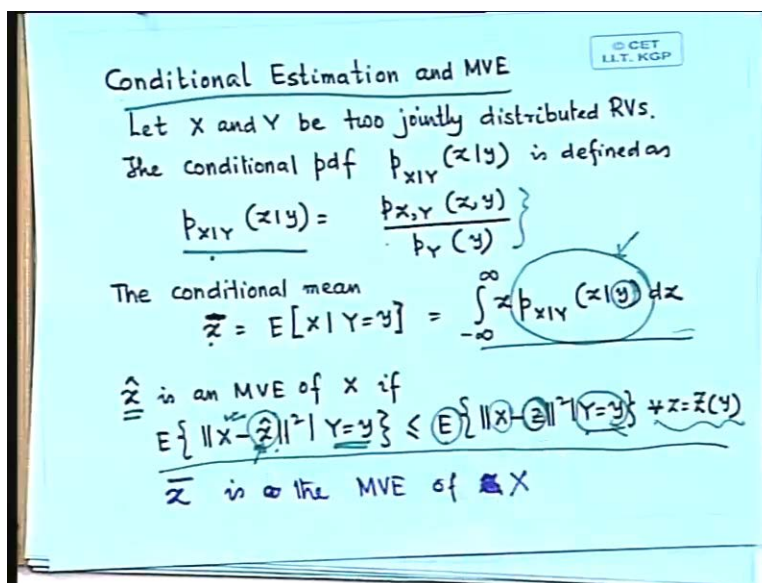 © CET
I.I.T. KGP
Conditional Estimation and MVE
Let X and Y be two jointly distributed RVs.
The conditional pdf p_{X|Y} (x|y) is defined as
p_{X|Y} (x|y) = p_{X,Y} (x,y) / p_Y (y) }
The conditional mean
x̄ = E[X|Y=y] = ∫_{-∞}^{∞} x p_{X|Y} (x|y) dx
x̂ is an MVE of X if
E{||X-x̂||²| Y=y} ≤ E{||X-z||²|Y=y} ∀ z=z(y)
x̄ is the MVE of X